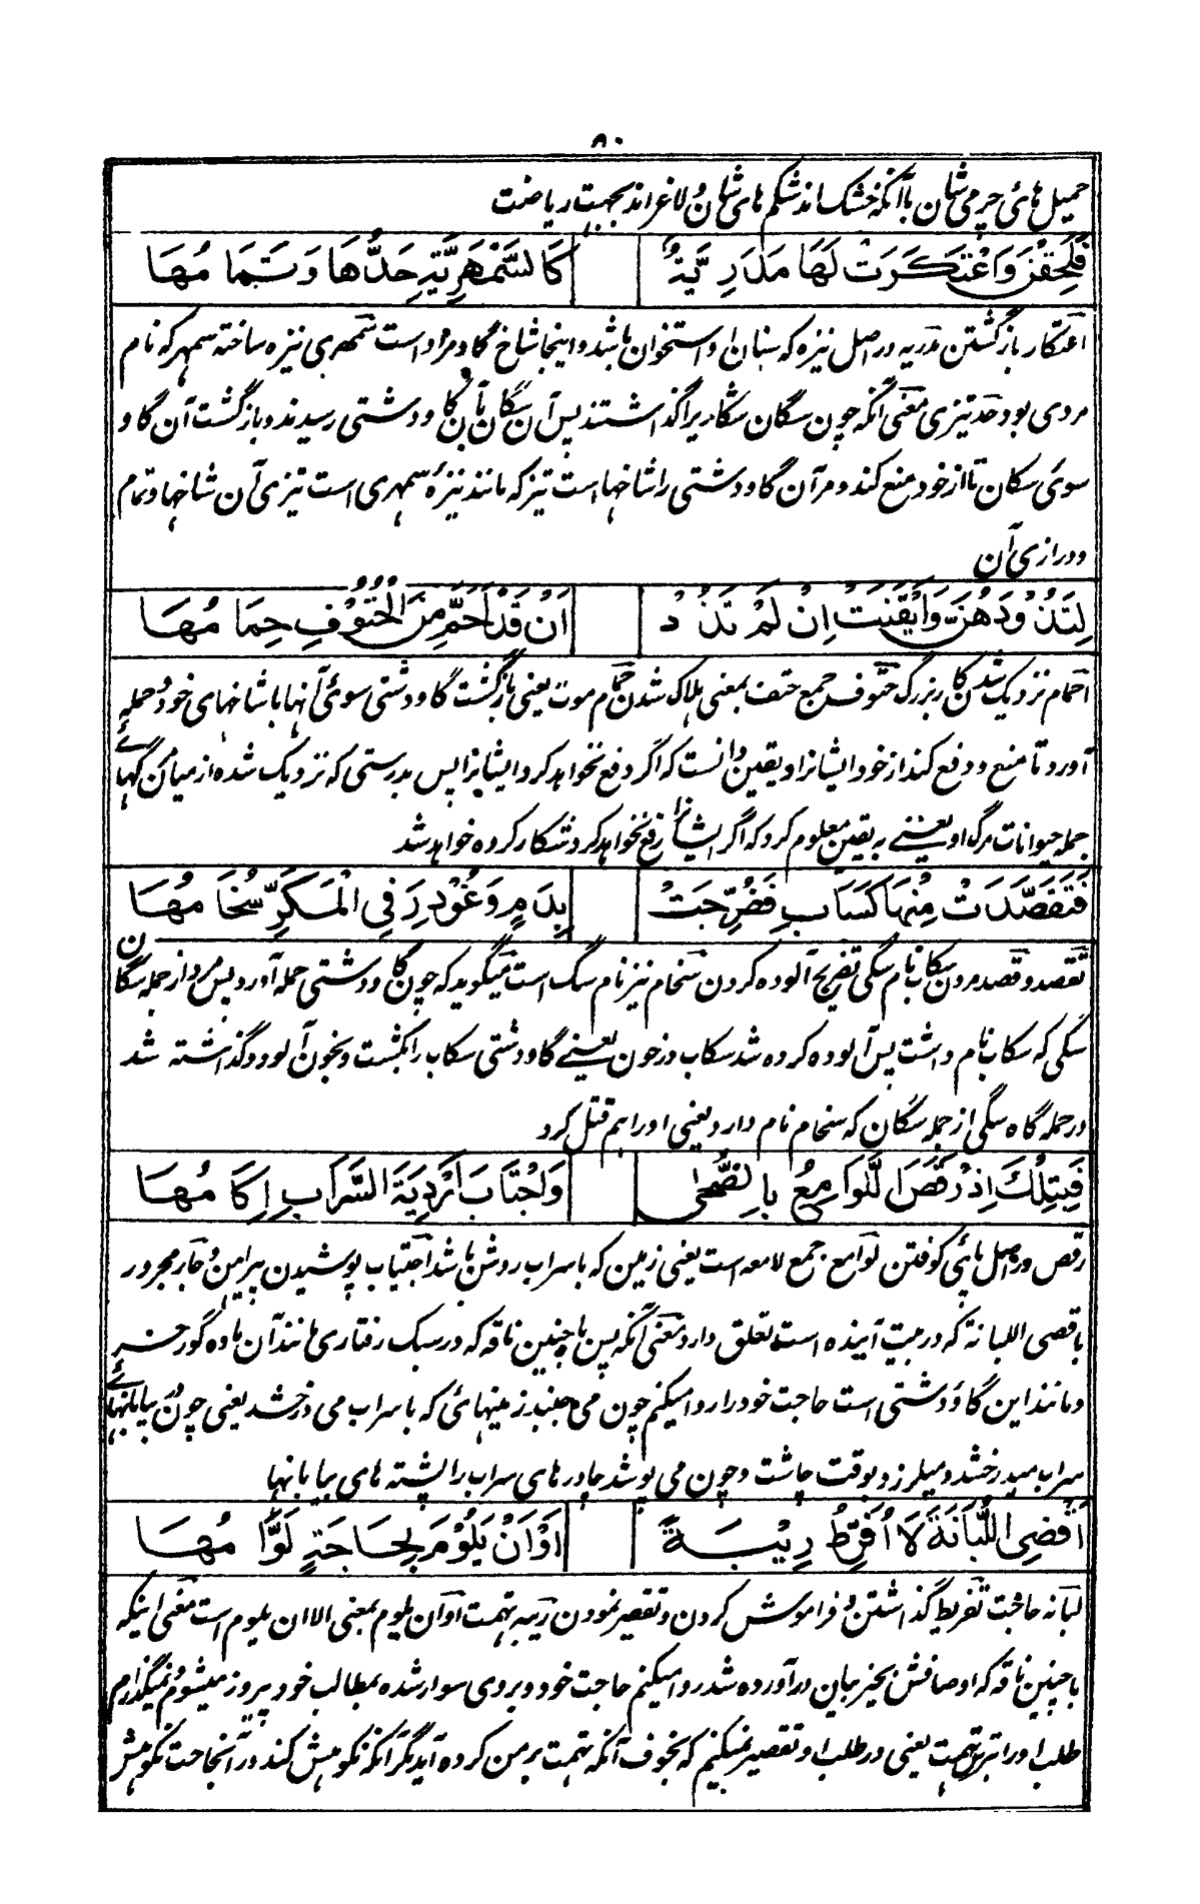 ۸۰
حمیل های چرمی شان با آنکه خشک اند شکم های شان و لاغر اند بجهت ریاضت
فَلَحِقْنَ وَاعْتَكَرَتْ لَهَا مَدَرِيَّةٌ كَالسَّمْهَرِيَّةِ حَدُّهَا وَتَمَا مُهَا
اعتکار بازگشتن مدریه در اصل نیزه که سنان او استخوان باشد و اینجا شاخ گاو مراد است سمهری نیزه ساخته سمهر که نام
مردی بود حد تیزی معنی آنکه چون سگان شکاریرا گذاشتند پس آن سگان بآن گاو دشتی رسیدند و بازگشت آن گاو
سوی سگان تا از خود منع کند و مر آن گاو دشتی را شاخها است تیز که مانند نیزۀ سمهری است تیزی آن شاخها و تمام
و درازی آن
لِتَذُوْدَهُنَّ وَأَيْقَنَتْ اِنْ لَمْ تَذُدْ اَنْ قَدْ اَحَمَّ مِنَ الْحُتُوْفِ حِمَا مُهَا
احمام نزدیک شدن کار بزرگ حتوف جمع حتف بمعنی هلاک شدن حمام موت یعنی بازگشت گاو دشتی سوی آنها با شاخهای خود و حمله
آورد تا منع و دفع کند از خود ایشانرا و یقین دانست که اگر دفع نخواهد کرد ایشانرا پس بدرستی که نزدیک شده از میان مرگهای
جمله حیوانات مرگ او یعنی به یقین معلوم کرد که اگر ایشانرا دفع نخواهد کرد شکار کرده خواهد شد
فَتَقَصَّدَتْ مِنْهَا كَسَابِ فَضُرِّجَتْ بِدَمٍ وَغُوْدِرَ فِي الْمَكَرِّ سُخَا مُهَا
تقصد و قصد مردن سکاب نام سگی تضریج آلوده کردن سخام نیز نام سگ است میگوید که چون گاو دشتی حمله آورد پس مرد از جمله سگان
سگی که سکاب نام داشت پس آلوده کرده شد سکاب در خون یعنی گاو دشتی سکاب را بکشت و بخون آلود و گذاشته شد
در حمله گاه سگی از جمله سگان که سخام نام دارد یعنی او را هم قتل کرد
فَبِتِلْكَ اِذْ رَقَصَ اللَّوَا مِعُ بِالضُّحٰی وَاجْتَابَ اَرْدِيَةَ السَّرَابِ اِكَا مُهَا
رقص در اصل پای کوفتن لوامع جمع لامعه است یعنی زمین که با سراب روشن باشد اجتیاب پوشیدن پیراهن و جار مجرور
با قصی اللبانة که در بیت آینده است تعلق دارد معنی آنکه پس باچنین ناقه که در سبک رفتاری مانند آن ماده گورخر
و مانند این گاو دشتی است حاجت خود را روا میکنم چون می جنبد زمینهائی که با سراب می درخشد یعنی چون بیابانهای
سراب میدرخشد و میلرزد بوقت چاشت و چون می پوشد چادرهای سراب را پشته های بیابانها
اَقْضِی اللُّبَانَةَ لَا اُفَرِّطُ رِيْبَةً اَوْ اَنْ يَلُوْمَ بِحَاجَةٍ لَوَّا مُهَا
لبانه حاجت تفریط گذاشتن و فراموش کردن و تقصیر نمودن ریبه تهمت او ان یلوم بمعنی الا ان یلوم است معنی اینکه
باچنین ناقه که اوصافش بحیز بیان در آورده شد روا میکنم حاجت خود و بروی سوار شده بمطالب خود پیروز میشوم نمیگذارم
طلب او را تهمت یعنی در طلب او تقصیر نمیکنم که بخوف آنکه تهمت بر من کرده آید مگر آنکه نکوهش کند در آنحاجت نکوهش